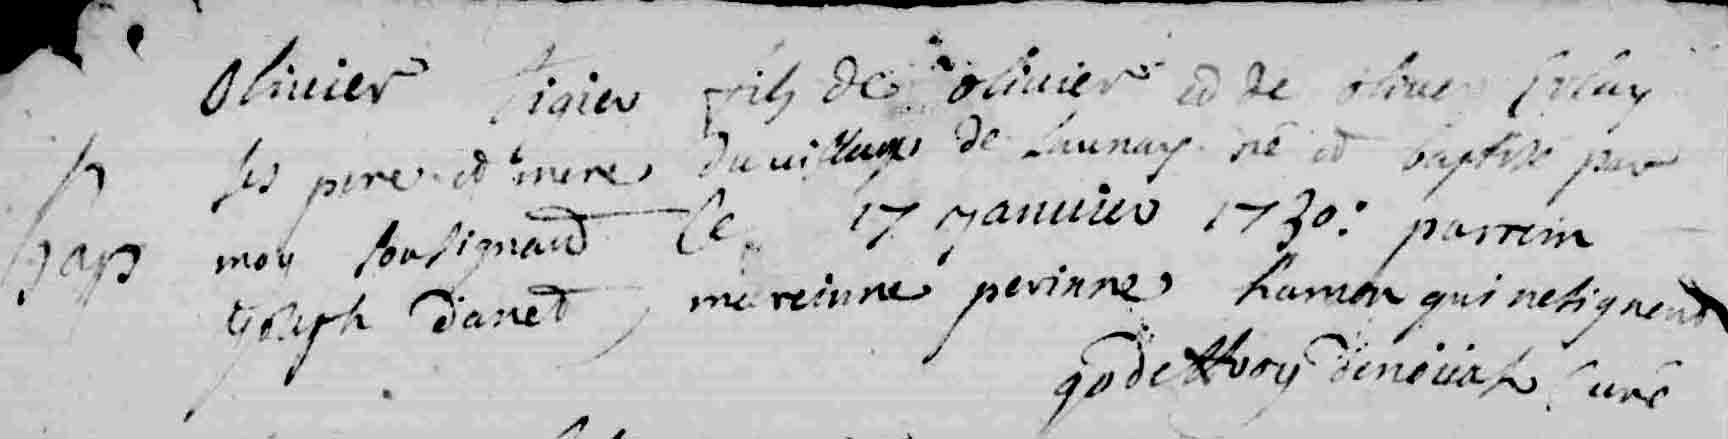 Olivier Sigier fils de olivier et de olive
ses pere et mere du village de Launay né et baptisé par
bap moy soussignant Ce 17 janvier 1730: parrein
joseph danet mareinne perinne hamon qui ne signent
Curé